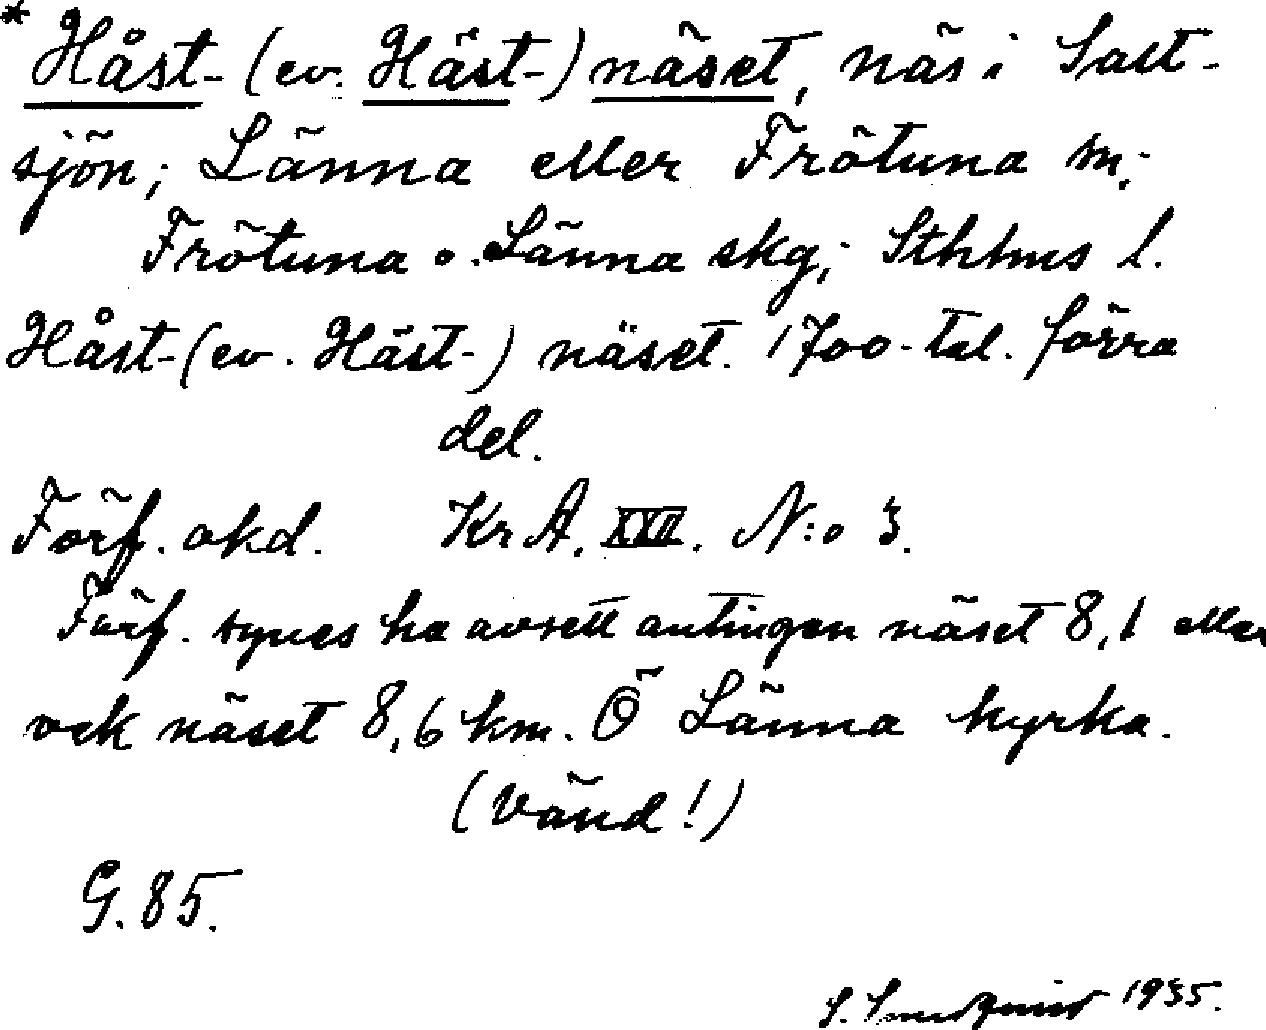 * Håst- (ev. Häst-) näset, näs i Salt-
sjön; Länna eller Frötuna sn.;
Frötuna o. Länna skg; Sthlms l.
Håst- (ev. Häst-) näset. 1700-tal. förra
del.
Förf. okd. KrA. XXII. N:o 3.
Förf. synes ha avsett antingen näset 8,1 eller
ock näset 8,6 km. Ö Länna kyrka.
(Vänd!)
G. 85.
S. 1935.